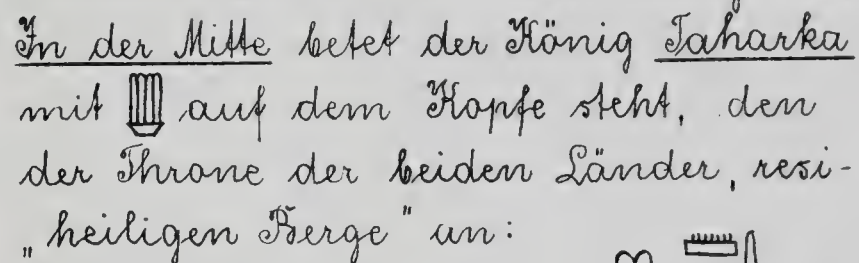 In der Mitte betet der König Taharka
mit auf dem Kopfe steht, den
der Throne der beiden Länder, resi-
„heiligen Berge" an: